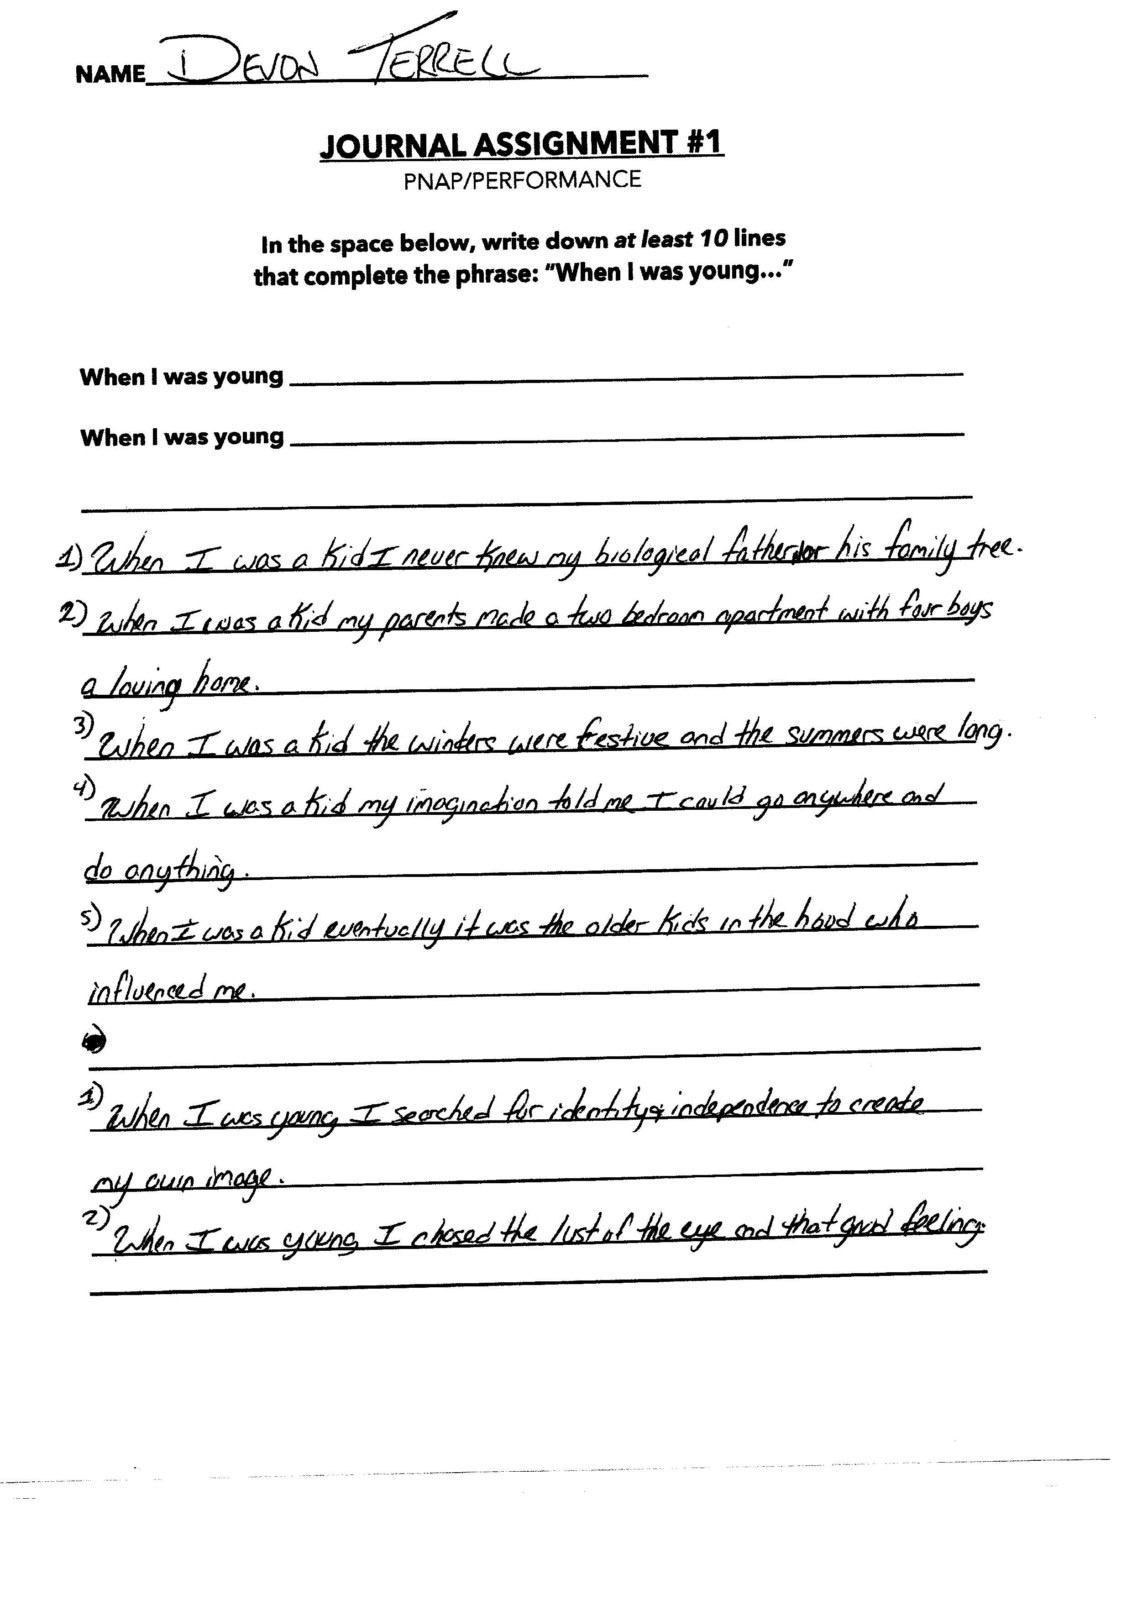 NAME DEVON TERRELL
JOURNAL ASSIGNMENT #1
PNAP/PERFORMANCE
In the space below, write down at least 10 lines
that complete the phrase: "When I was young..."
When I was young
When I was young
1) When I was a kid I never knew my biological father or his family tree.
2) When I was a kid my parents made a two bedroom apartment with four boys
a loving home.
3) When I was a kid the winters were festive and the summers were long.
4) When I was a kid my imagination told me I could go anywhere and
do anything.
5) When I was a kid eventually it was the older kids in the hood who
influenced me.
1) When I was young I searched for identity & independence to create
my own image.
2) When I was young I chased the lust of the eye and that good feeling.